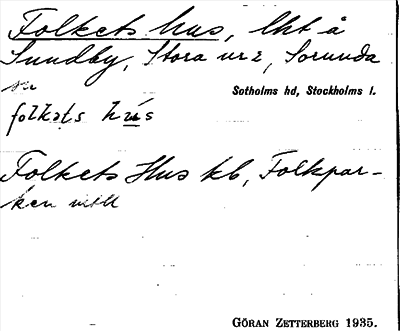 Folkets hus, lht å
Sundby, Stora nr 2, Sorunda
sn
Sotholms hd, Stockholms l.
folkəts hús
Folkets Hus kb, Folkpar-
ken
GÖRAN ZETTERBERG 1935.